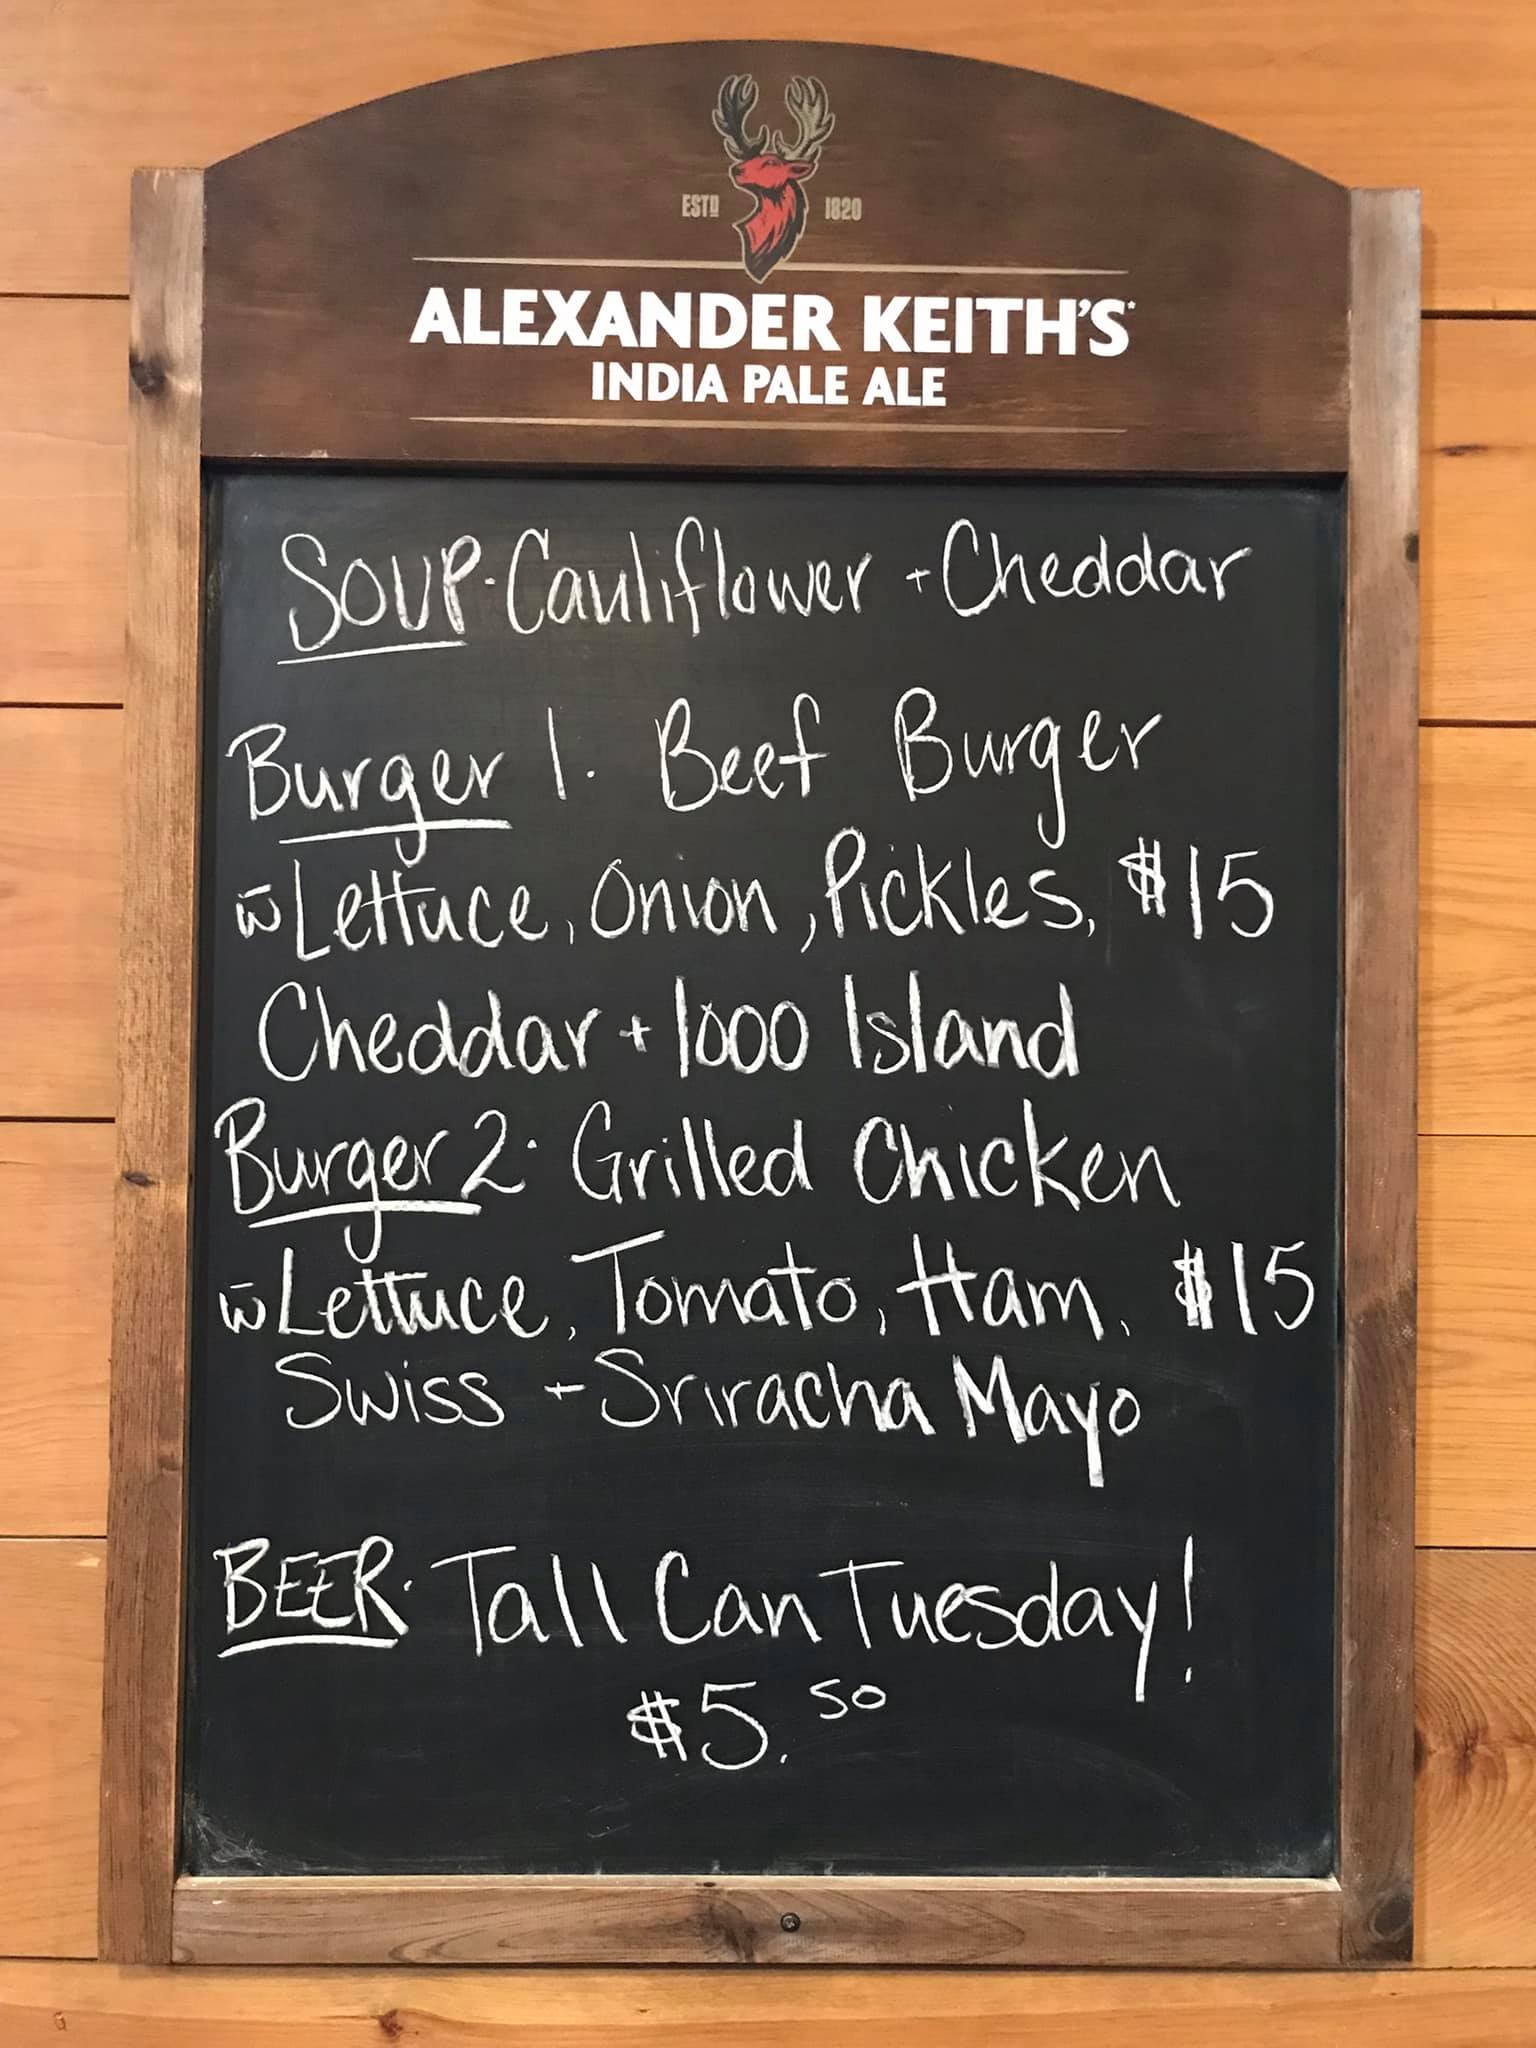 ESTD 1820
ALEXANDER KEITH'S*
INDIA PALE ALE
SOUP. Cauliflower + Cheddar
Burger 1. Beef Burger
w̄ Lettuce, Onion, Pickles, $15
Cheddar + 1000 Island
Burger 2. Grilled Chicken
w̄ Lettuce, Tomato, Ham, $15
Swiss + Sriracha Mayo
BEER. Tall Can Tuesday!
$5.50